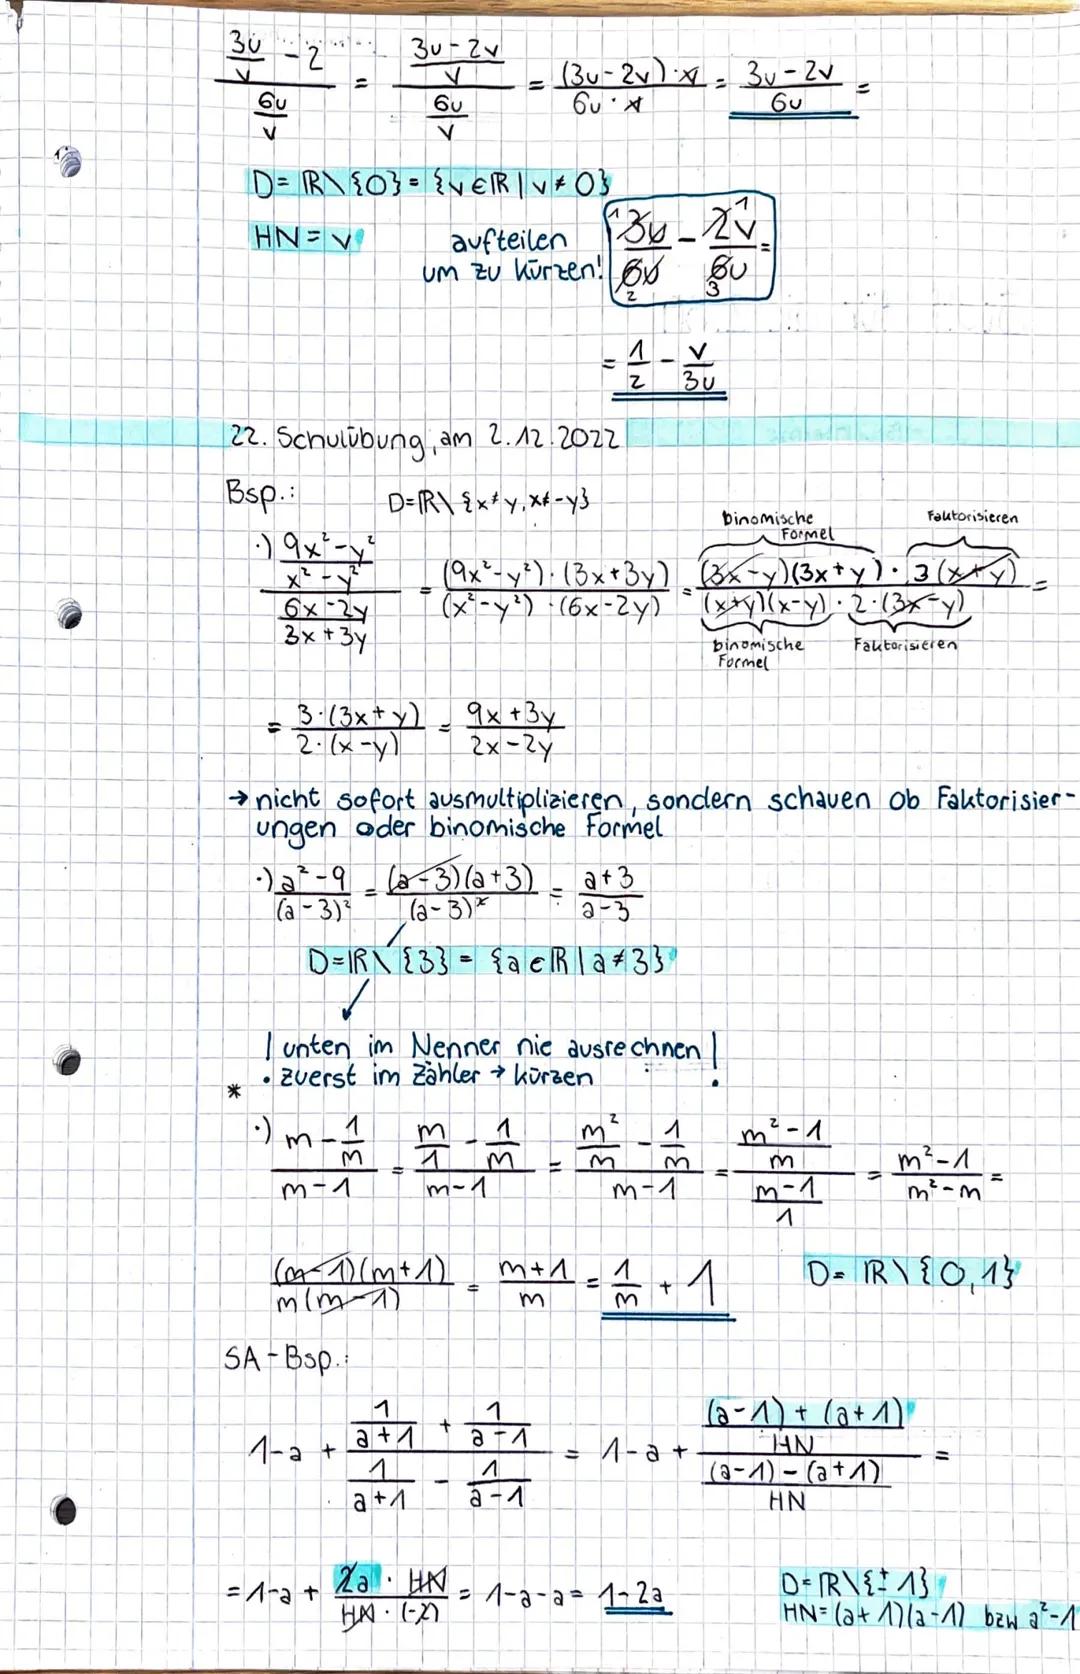 (3u/v - 2)/(6u/v) = ((3u-2v)/v)/(6u/v) = ((3u-2v)·v)/(6u·v) = (3u-2v)/(6u) =
D= ℝ\{0} = {v∈ℝ | v≠0}
HN = v
aufteilen
um zu kürzen!
3u/6u - 2v/6u =
= 1/2 - v/3u
22. Schulübung, am 2.12.2022
Bsp.:
D=ℝ\{x≠y, x≠-y}
binomische Formel
Faktorisieren
·) ((9x²-y²)/(x²-y²))/((6x-2y)/(3x+3y)) = ((9x²-y²)·(3x+3y))/((x²-y²)·(6x-2y)) = ((3x-y)(3x+y)·3(x+y))/((x+y)(x-y)·2·(3x-y)) =
binomische Formel
Faktorisieren
= (3·(3x+y))/(2·(x-y)) = (9x+3y)/(2x-2y)
→ nicht sofort ausmultiplizieren, sondern schauen ob Faktorisier-
ungen oder binomische Formel
·) (a²-9)/(a-3)² = ((a-3)(a+3))/(a-3)² = (a+3)/(a-3)
D=ℝ\{3} = {a∈ℝ | a≠3}
! unten im Nenner nie ausrechnen !
* • zuerst im Zähler → kürzen
·) (m - 1/m)/(m-1) = (m/1 - 1/m)/(m-1) = (m²/m - 1/m)/(m-1) = ((m²-1)/m)/((m-1)/1) = (m²-1)/(m²-m) =
((m-1)(m+1))/(m(m-1)) = (m+1)/m = 1/m + 1
D= ℝ\{0,1}
SA-Bsp.:
1-a + (1/(a+1) + 1/(a-1))/(1/(a+1) - 1/(a-1)) = 1-a + (((a-1)+(a+1))/HN)/(((a-1)-(a+1))/HN) =
= 1-a + (2a · HN)/(HN · (-2)) = 1-a-a = 1-2a
D=ℝ\{±1}
HN= (a+1)(a-1) bzw a²-1